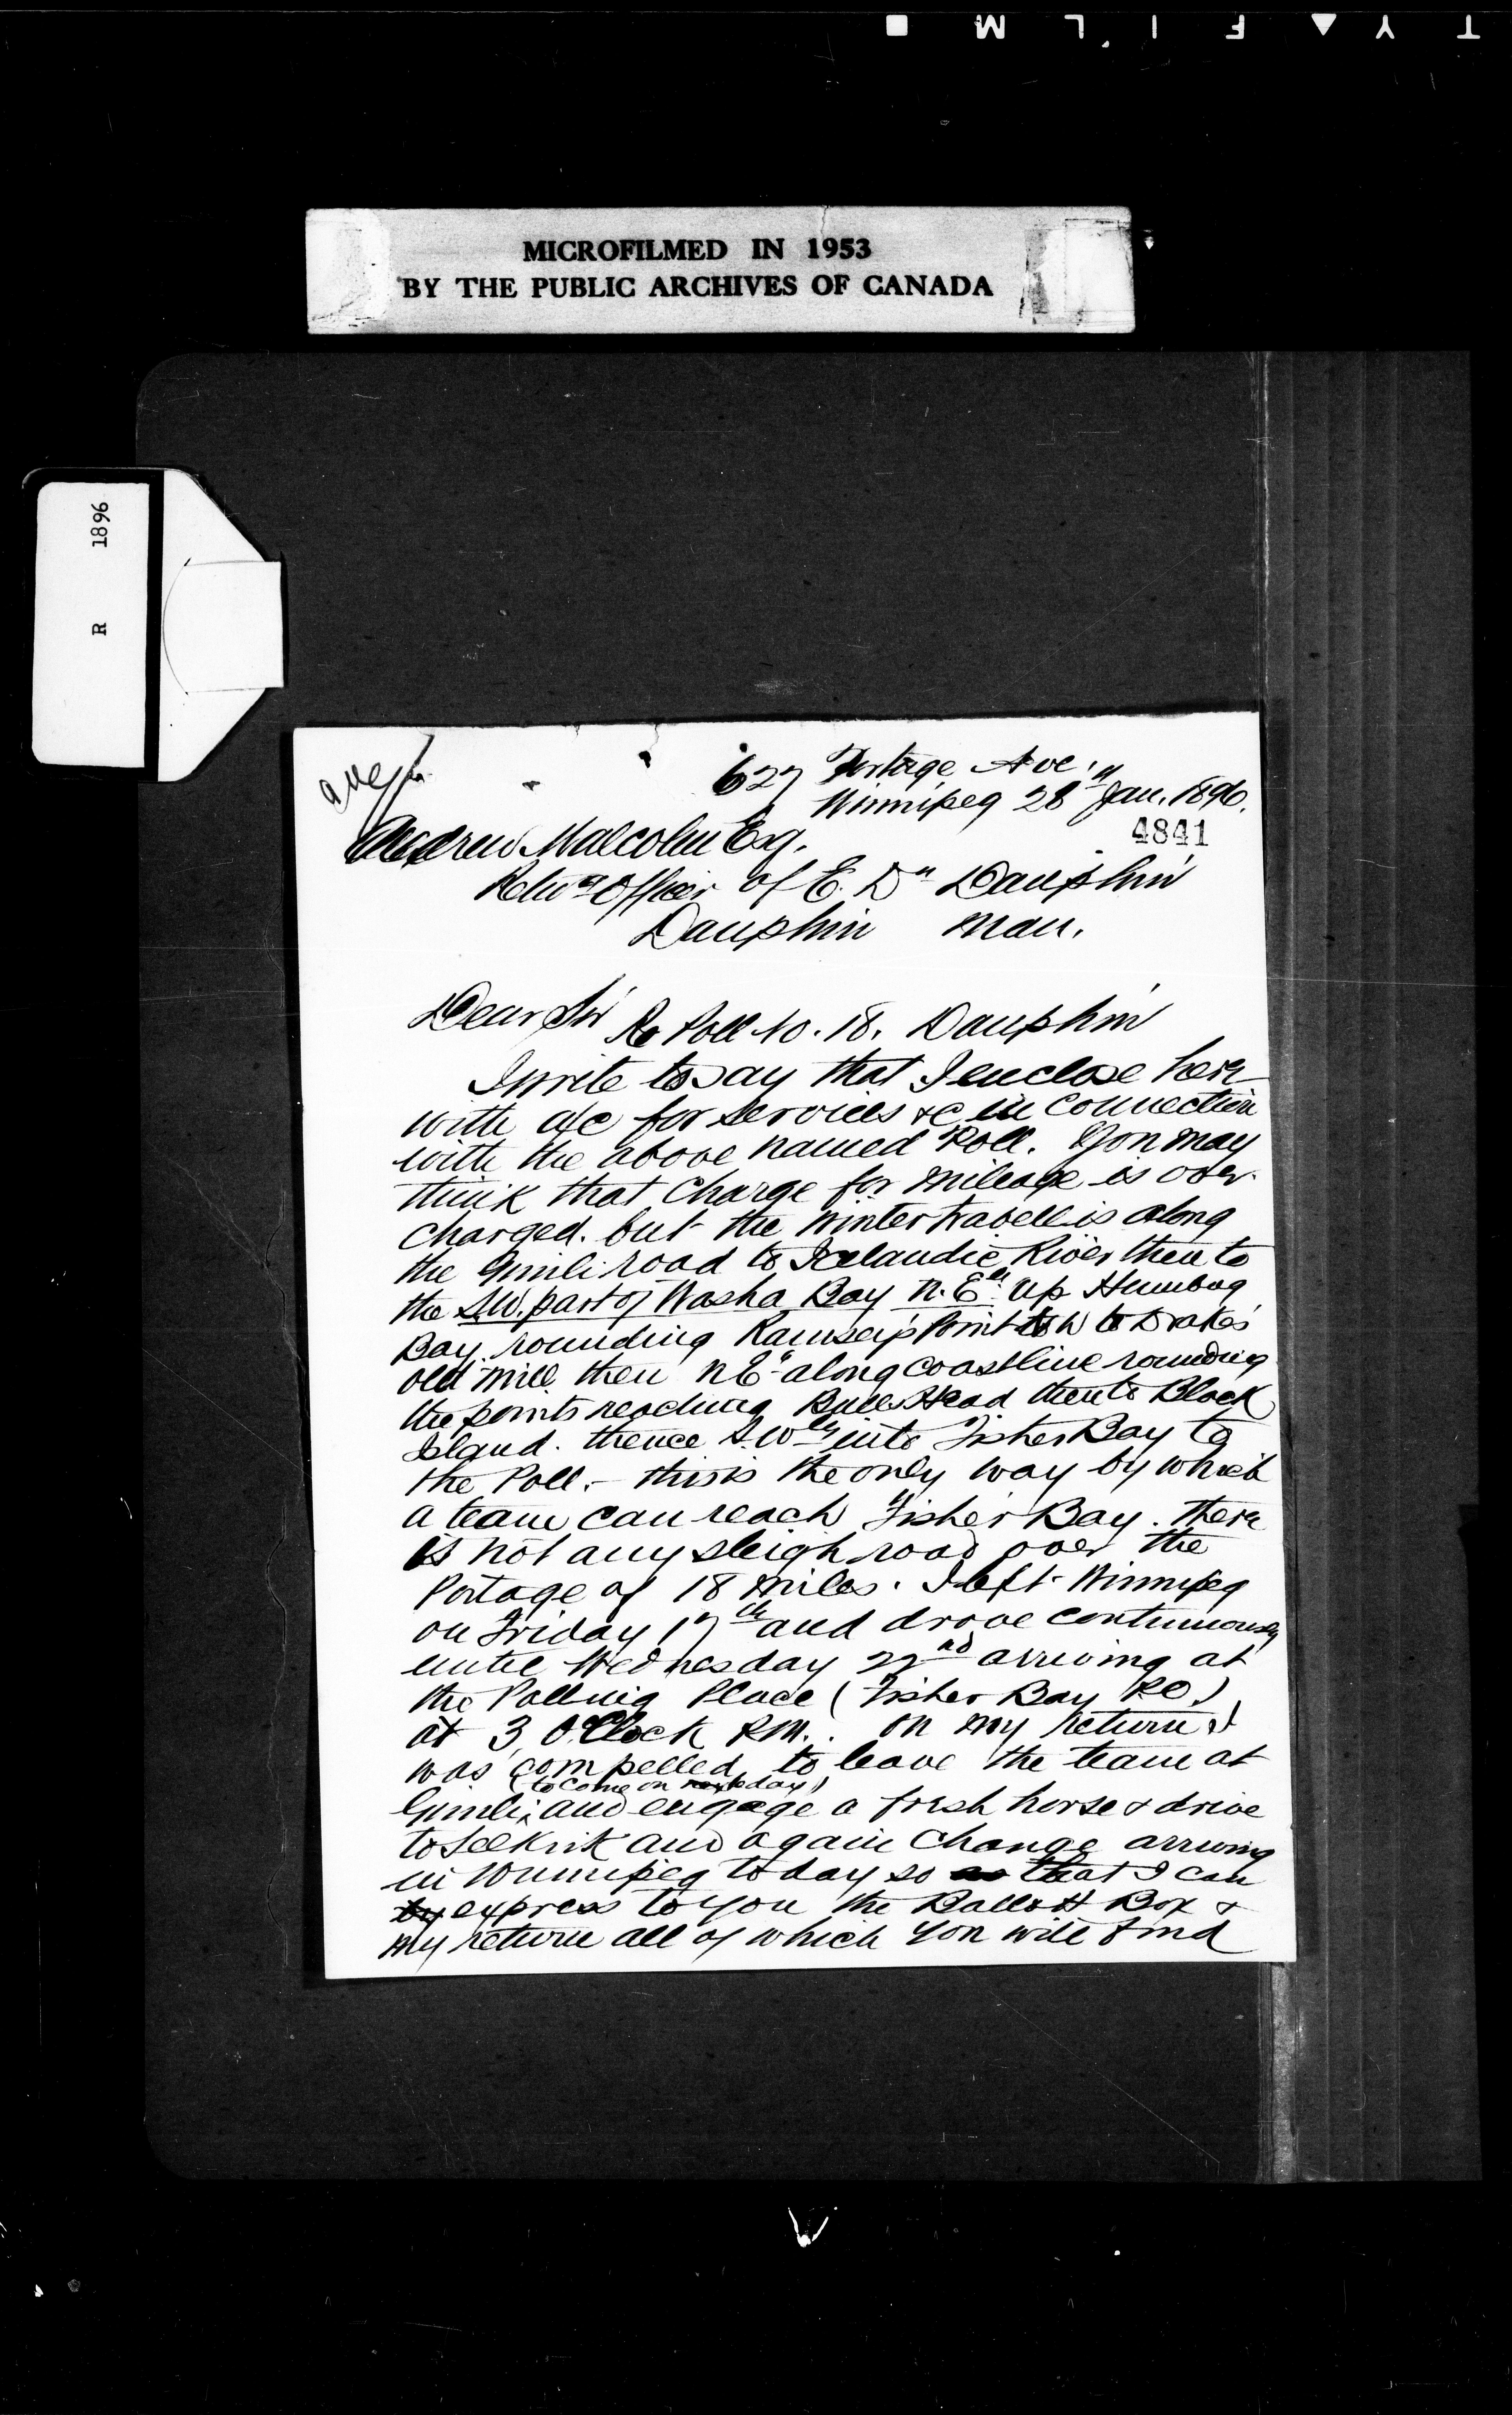 TY▲FILM■
MICROFILMED IN 1953
BY THE PUBLIC ARCHIVES OF CANADA
R 1896
627 Portage Ave.
Winnipeg 28" Jan. 1896.
4841
Andrew Malcolm Esq.
Retng Officer of E. Dn Dauphin
Dauphin Man.
Dear Sir
Re Poll No. 18. Dauphin
I write to say that I enclose here
with a/c for services &c in connection
with the above named Poll. You may
think that Charge for mileage is over
charged. but the Winter travell is along
the Gimli road to Icelandic River then to
the S.W. part of Washa Bay N.E. up Humbug
Bay. rounding Ramsay's Point to W to Drakes
old mill then N.E. along coastline rounding
the points reaching Bulls Head then to Black
Island. thence S.Wly into Fisher Bay to
the Poll. - this is the only way by which
a team can reach Fisher Bay. there
is not any sleigh road over the
Portage of 18 miles. I left Winnipeg
on Friday 17th and drove continuously
until Wednesday 22nd arriving at
the Polling Place (Fisher Bay P.O.)
at 3 O'Clock P.M.. On my return I
was compelled to leave the team at
(to come on next day)
Gimli, and engage a fresh horse & drive
to Selkirk and again Change arriving
in Winnipeg today so as that I can
by express to you the Ballott Box &
my return all of which you will find